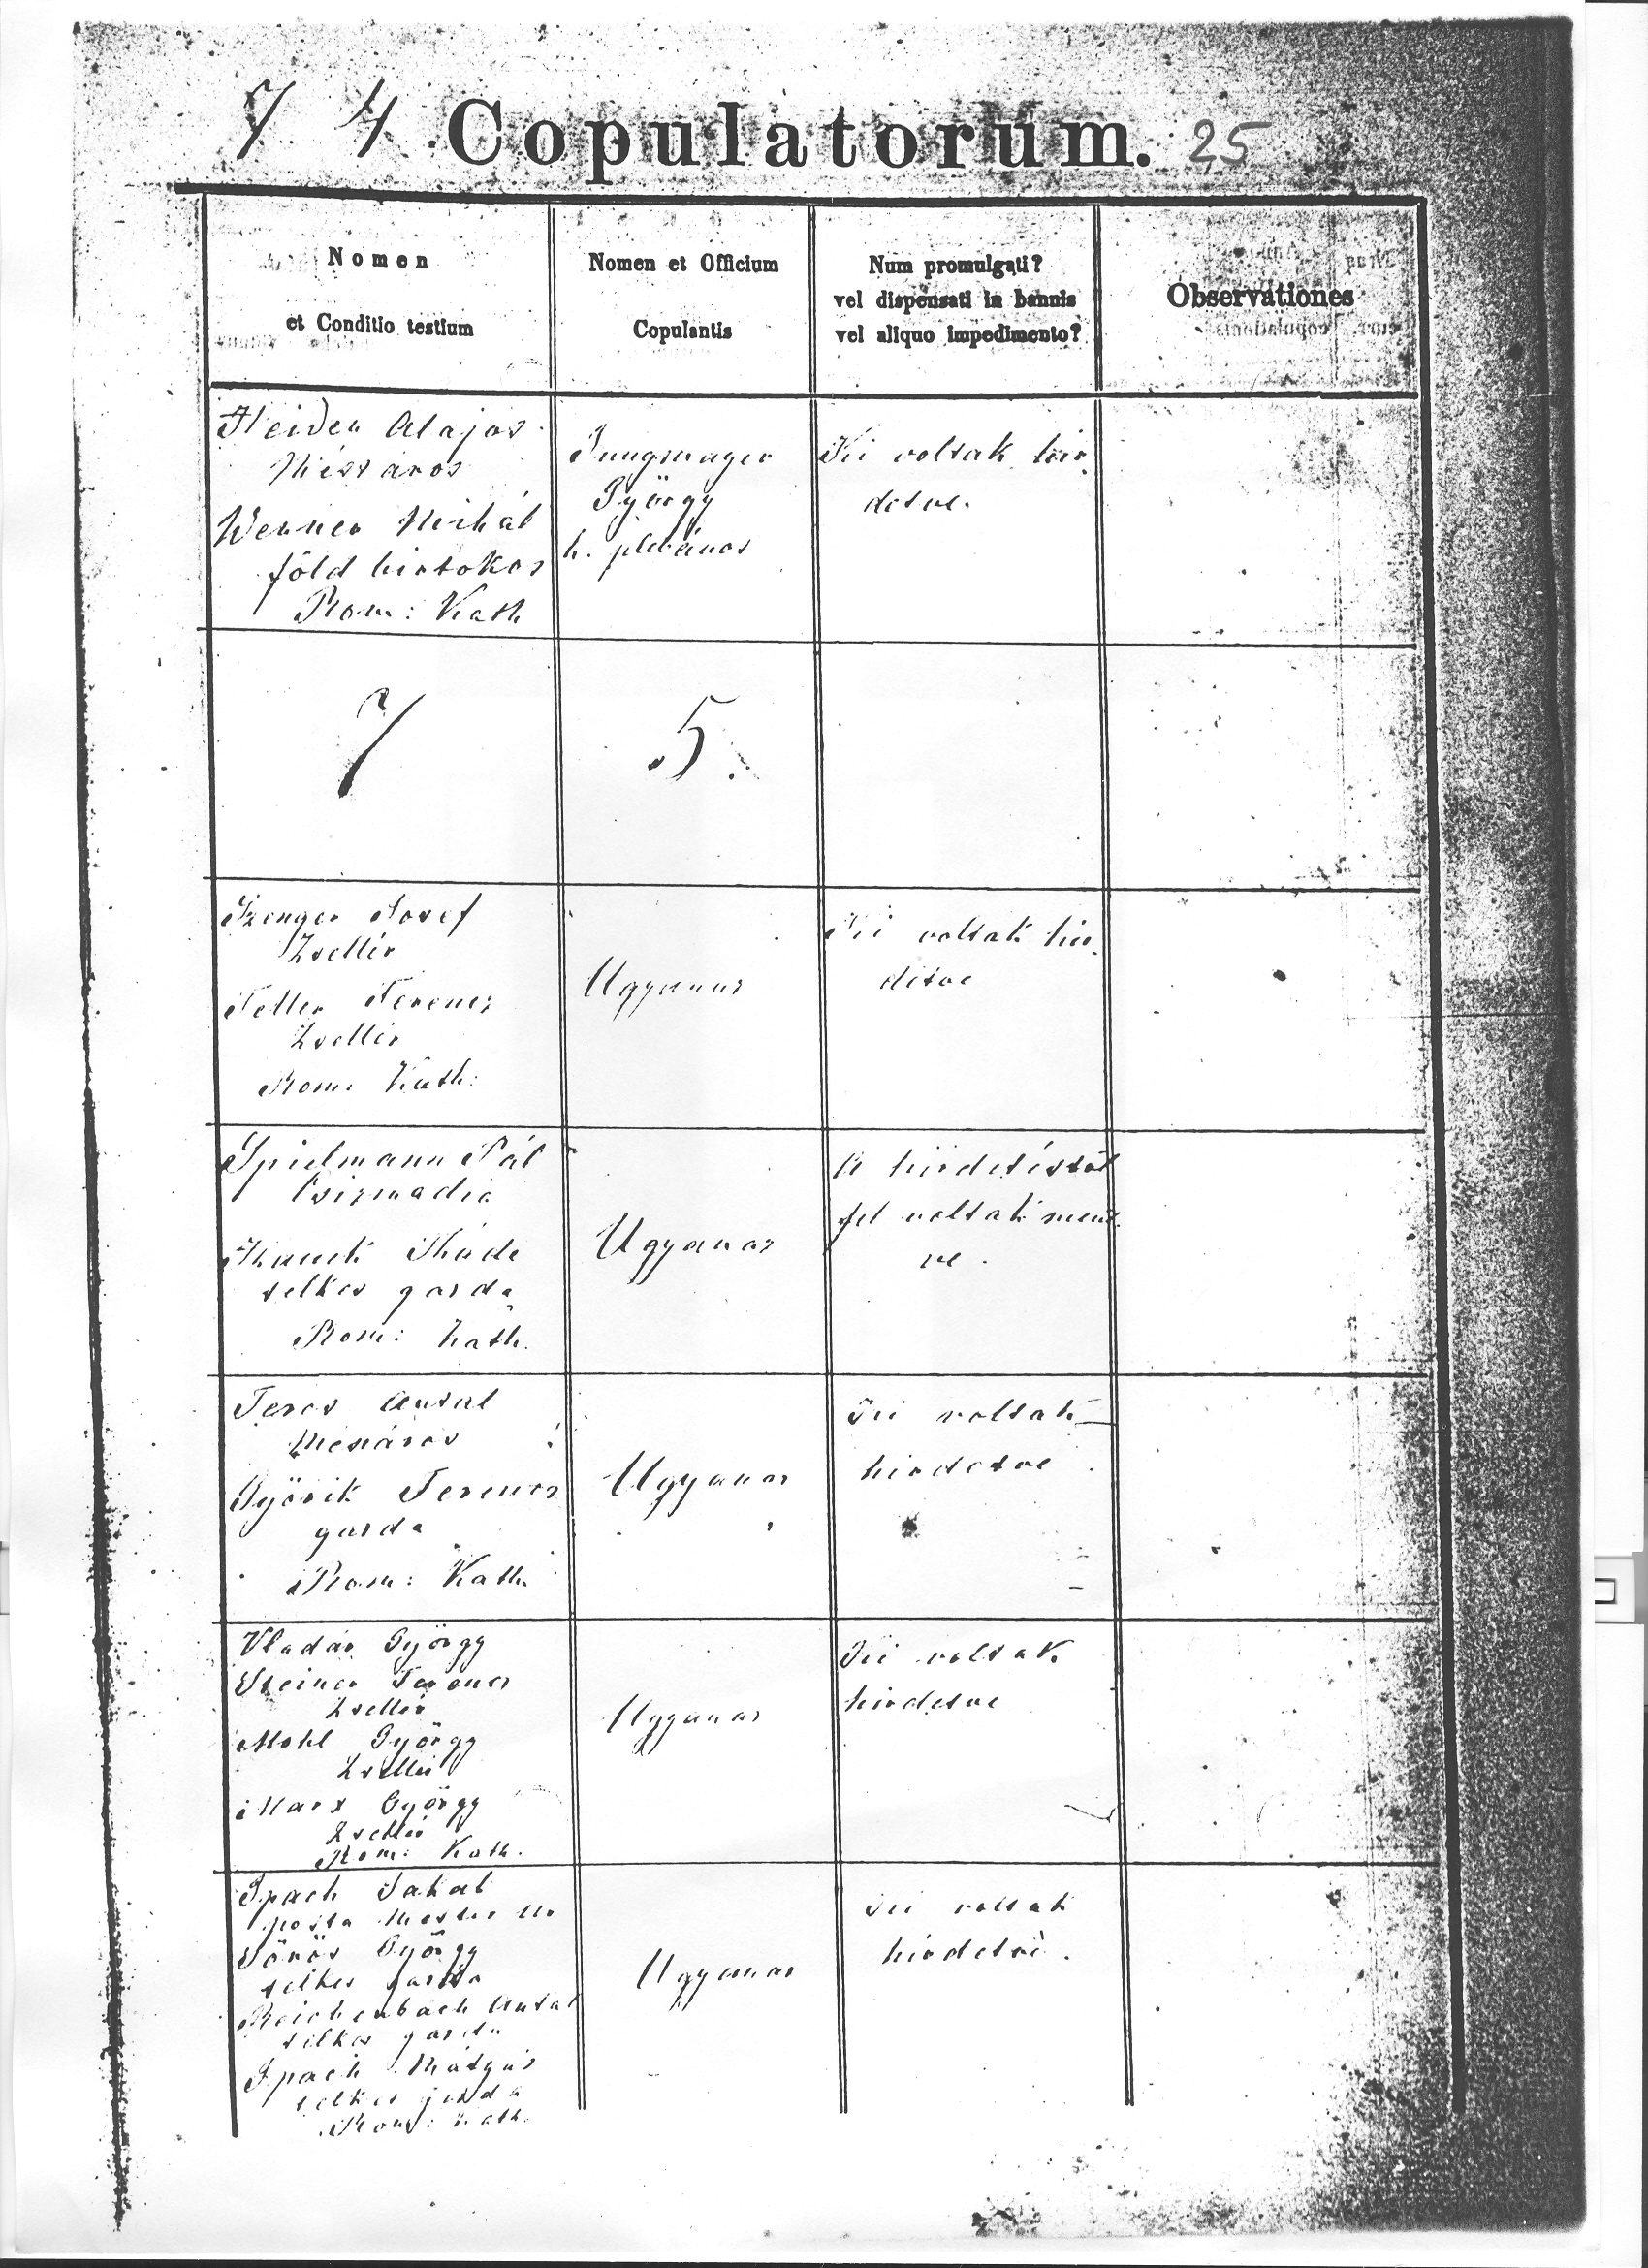 7 4 Copulatorum. 25
Nomen
et Conditio testium
Nomen et Officium
Copulantis
Num promulgati?
vel dispensati in bannis
vel aliquo impedimento?
Observationes
Heiden Alajos
Mészáros
Werner Mihál
föld birtokos
Rom: Kath
Jungmayer
György
h. plebános
Ki voltak hir
detve.
7
5.
Szenger Josef
Zsellér
Feller Ferencz
Zsellér
Rom: Kath:
Ugyanaz
Ki voltak hir
detve
Spielmann Pál
Csizmadia
telkes gazda
Rom: Kath.
Ugyanaz
A hirdetéstől
fel voltak ment
ve.
Antal
Mészáros
Györik Ferencz
gazda
Rom: Kath.
Ugyanaz
Ki voltak
hirdetve
Vladár György
Steiner Ferencz
Zsellér
Mohl György
Zsellér
Marx György
Zsellér
Rom: Kath.
Ugyanaz
Ki voltak
hirdetve
Spach Jakab
posta Mester
György
telkes gazda
Reichenbach Antal
telkes gazda
Spach Mátyás
telkes gazda
Rom: Kath.
Ugyanaz
Ki voltak
hirdetve.